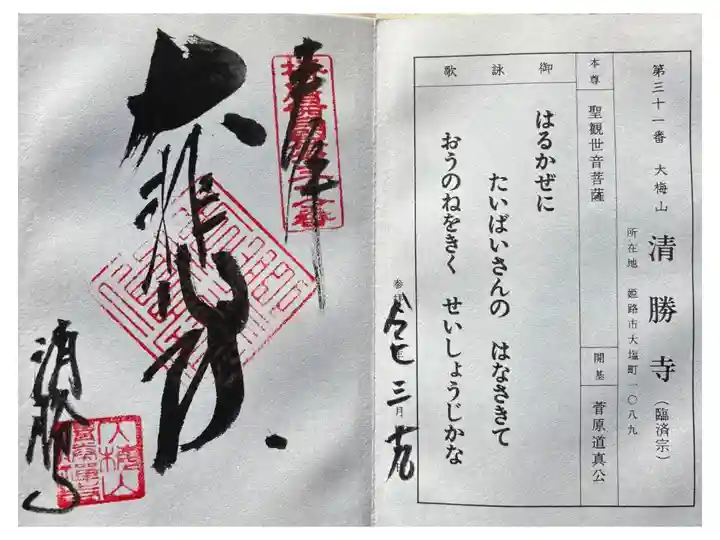 第三十一番 大梅山 清勝寺(臨済宗)
所在地 姫路市大塩町一〇八九
本尊 聖観世音菩薩
開基 菅原道真公
御詠歌
はるかぜに
たいばいさんの はなさきて
おうのねをきく せいしょうじかな
三月
奉拝
大悲殿
清勝寺